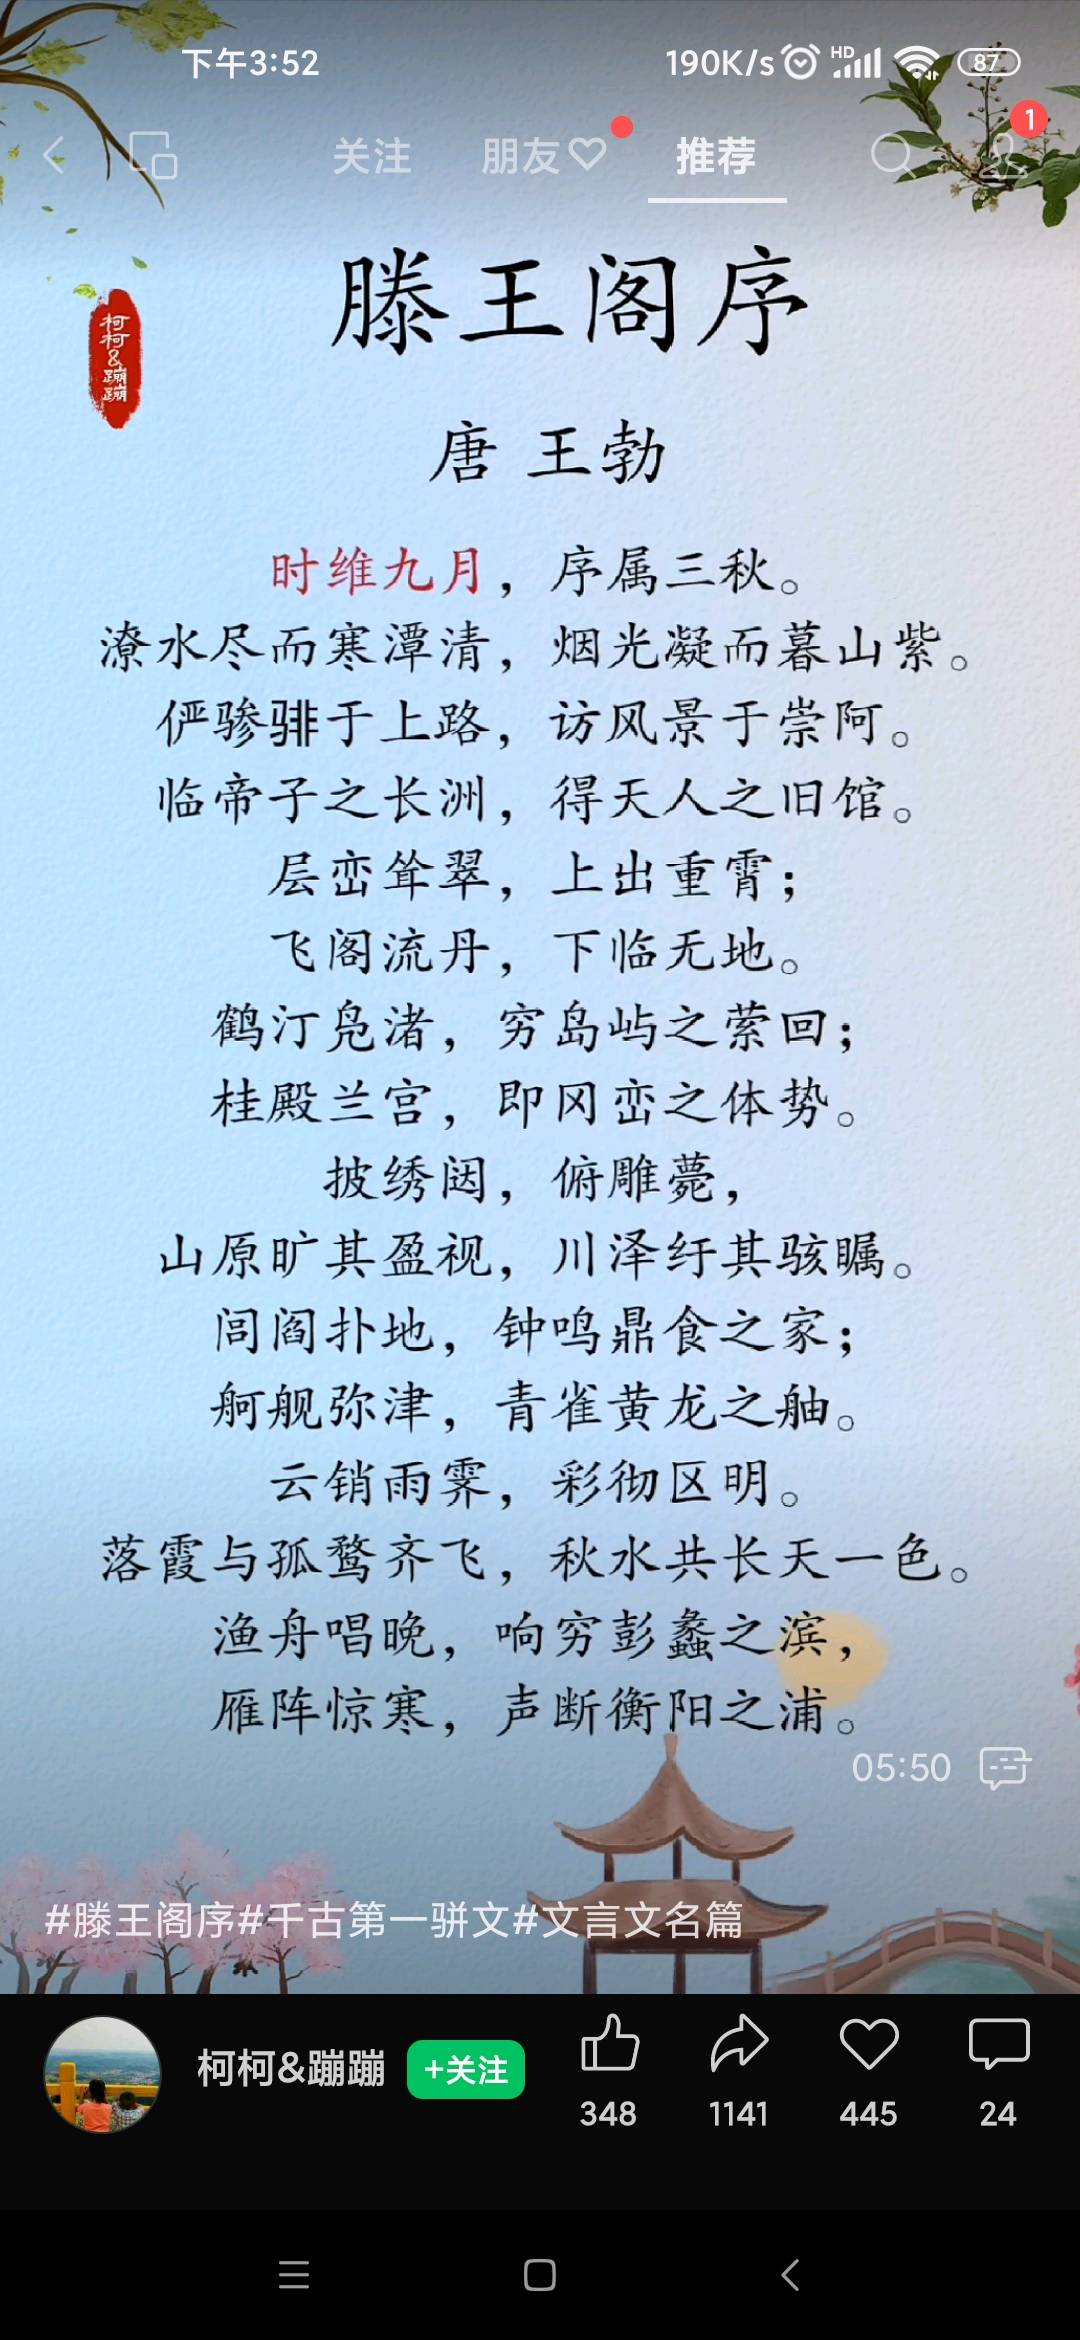 下午3:52 190K/s HD 87
关注 朋友 推荐 1
滕王阁序
柯柯&蹦蹦
唐 王勃
时维九月，序属三秋。
潦水尽而寒潭清，烟光凝而暮山紫。
俨骖騑于上路，访风景于崇阿。
临帝子之长洲，得天人之旧馆。
层峦耸翠，上出重霄；
飞阁流丹，下临无地。
鹤汀凫渚，穷岛屿之萦回；
桂殿兰宫，即冈峦之体势。
披绣闼，俯雕甍，
山原旷其盈视，川泽纡其骇瞩。
闾阎扑地，钟鸣鼎食之家；
舸舰弥津，青雀黄龙之舳。
云销雨霁，彩彻区明。
落霞与孤鹜齐飞，秋水共长天一色。
渔舟唱晚，响穷彭蠡之滨，
雁阵惊寒，声断衡阳之浦。
05:50
#滕王阁序#千古第一骈文#文言文名篇
柯柯&蹦蹦 +关注
348 1141 445 24